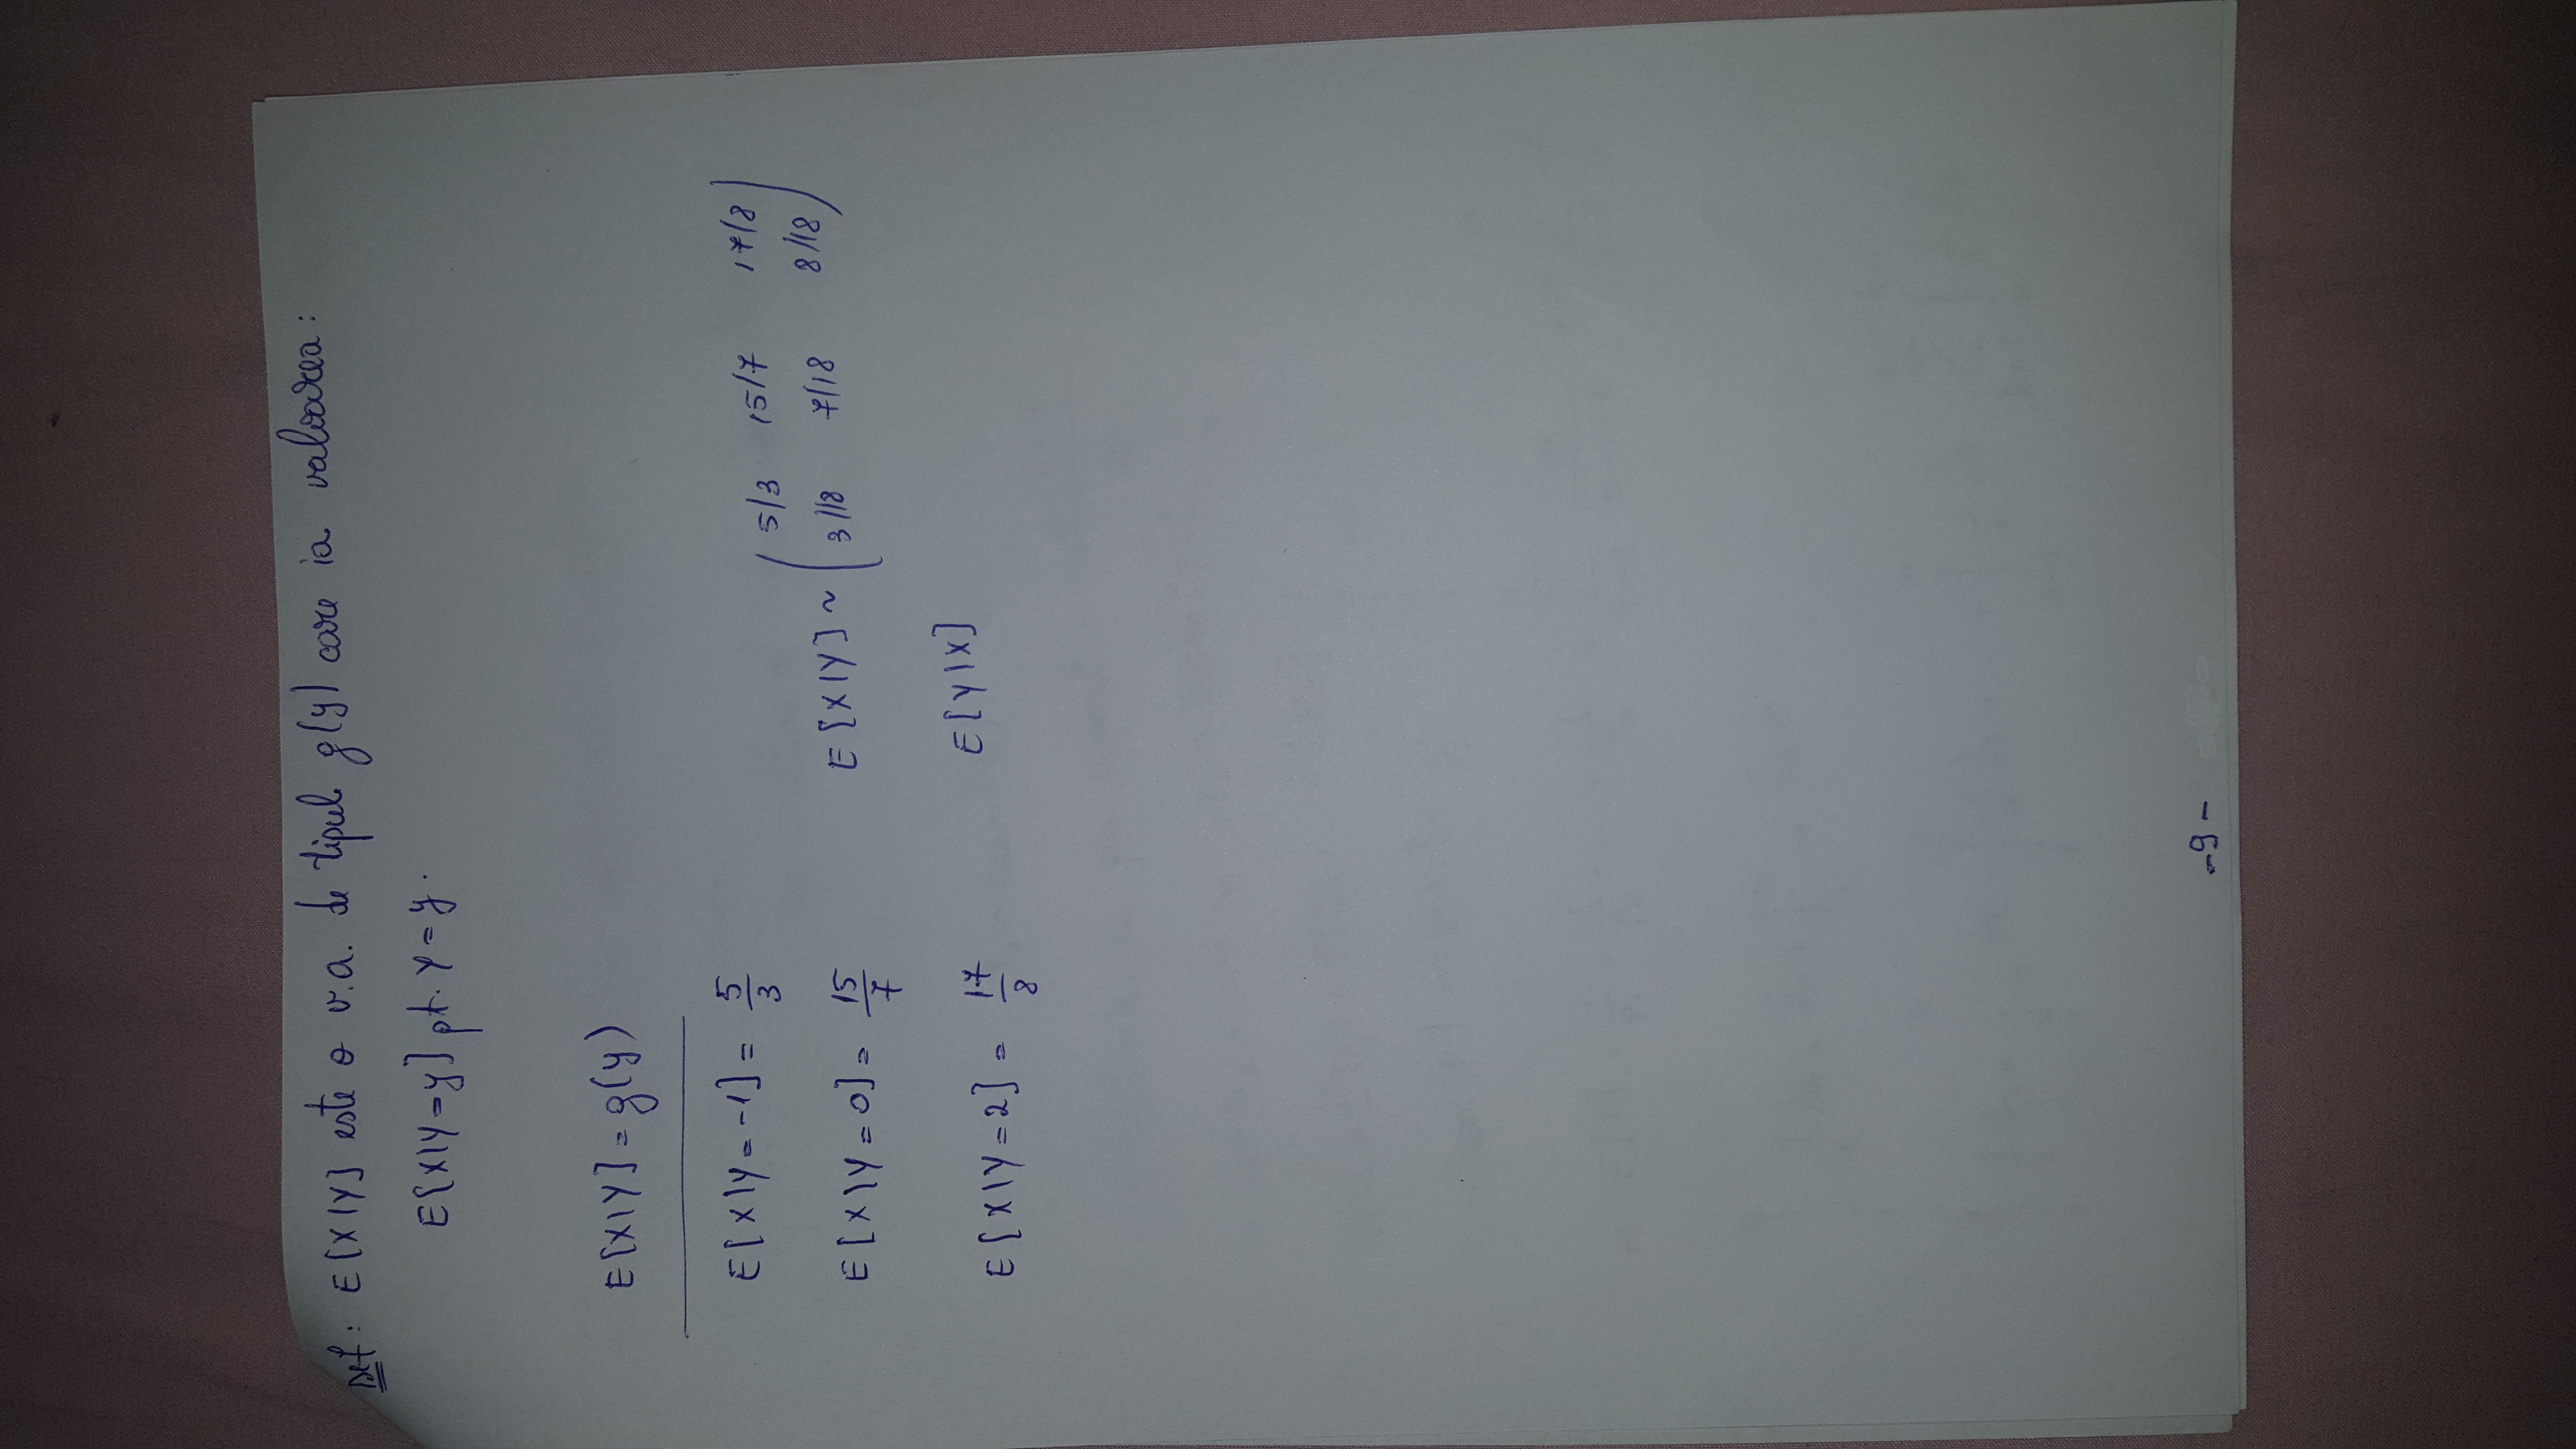 Def: E[X|Y] este o v.a. de tipul g(y) care ia valoarea:
E[X|Y=y] pt. Y=y.
E[X|Y] = g(y)
E[X|Y=-1] = 5/3
E[X|Y=0] = 15/7
E[X|Y=2] = 17/8
E[X|Y] ~ ( 5/3 15/7 17/8
3/18 7/18 8/18 )
E[Y|X]
-9-